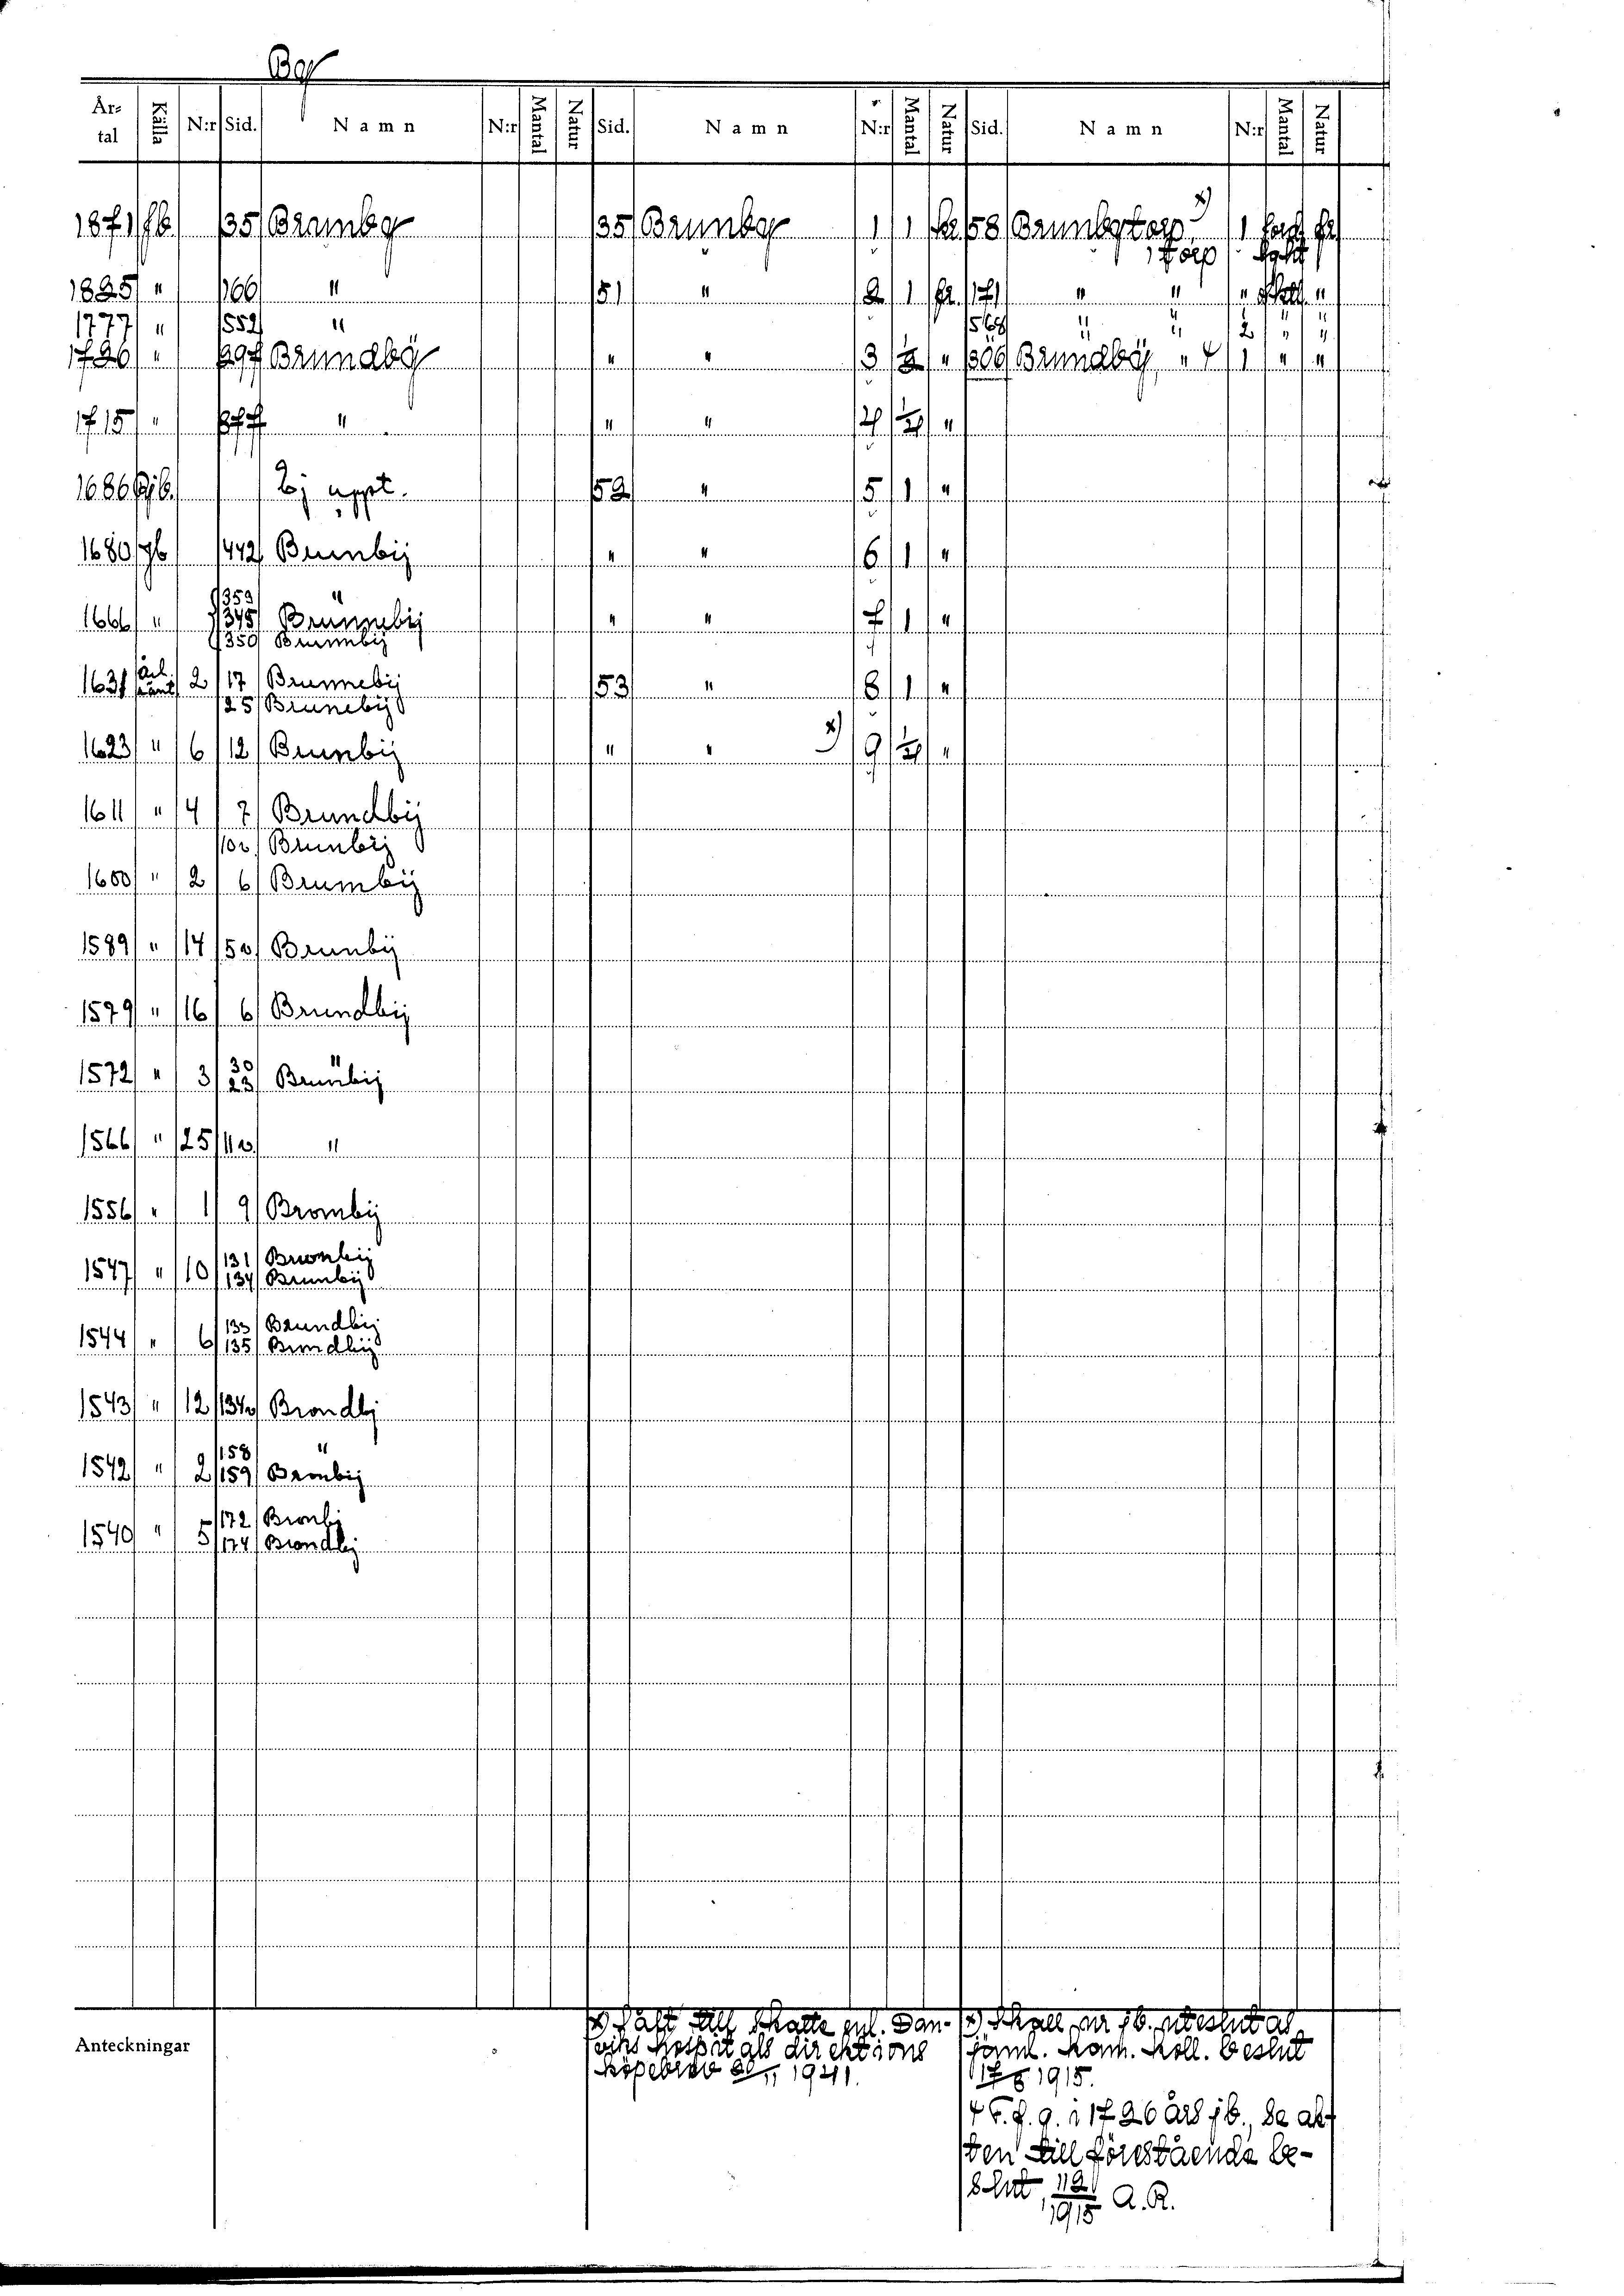 By
År-tal Källa N:r Sid. Namn N:r Mantal Natur Sid. Namn N:r Mantal Natur Sid. Namn N:r Mantal Natur
1871 jb. 35 Brunby 35 Brunby 1 1 kr. 58 Brunbytorp x) 1 fr.
torp
1825 " 166 " 51 " 2 1 fr. 171 " " " "
1777 " 552 " 568 " " 2 " "
1726 " 297 Brundbÿ " " 3 1/2 " 306 Brundbÿ, " 4 1 " "
1715 " 877 " " " 4 1/4 "
1686 Ej uppt. 52 " 5 1 "
1680 jb 442 Brunbij " " 6 1 "
1666 " 359 "
345 Brunnebij " " 7 1 "
350 Brunnbij
1631 årl. ränt. 2 17 Brunnebij 53 " 8 1 "
25 Brunebij
1623 " 6 12 Brunbij " " x) 9 1/4 "
1611 " 4 7 Brundbij
10v. Brunbij
1600 " 2 6 Brumbij
1589 " 14 5v. Brunbij
1579 " 16 6 Brundbij
1572 " 3 30 "
23 Brunbij
1566 " 25 11v. "
1556 " 1 9 Brombij
1547 " 10 131 Bronbij
134 Brunbij
1544 " 6 133 Brundbij
135 Brondbij
1543 " 12 134v Brondbj
1542 " 2 158 "
159 Bronbij
1540 " 5 172 Bronbj
174 Brondbj
Anteckningar
x) Sålt till skatte enl. Dan-
viks hospitals direktions
köpebrev 20/11 1941.
x) Skall ur jb. uteslutas
jäml. Kam. Koll. beslut
17/6 1915.
4 F. f. g. i 1726 års jb., se ak-
ten till förestående be-
slut, 112/1915 A.R.